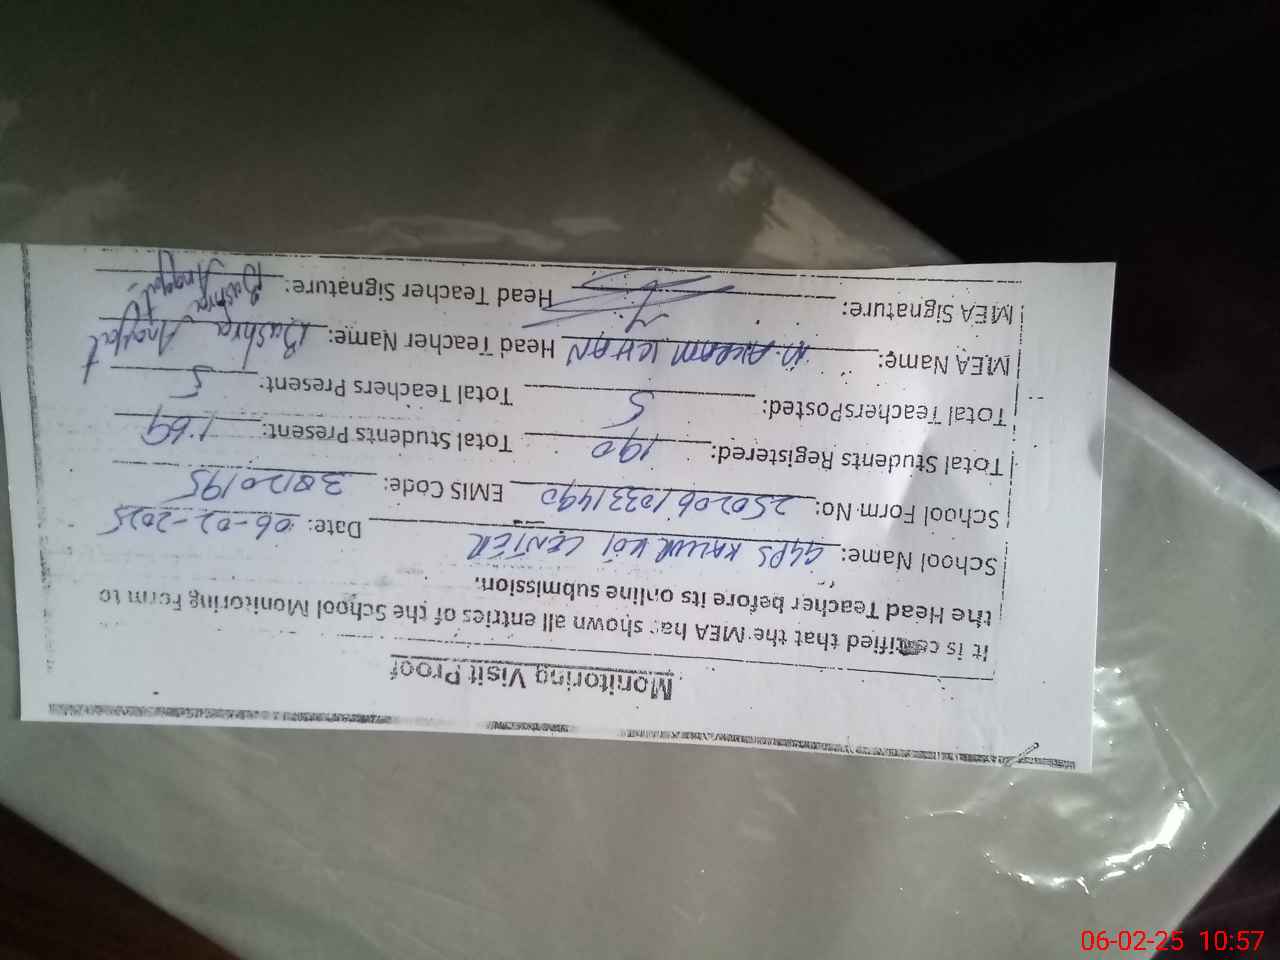 Monitoring Visit Proof
It is certified that the MEA has shown all entries of the School Monitoring Form to
the Head Teacher before its online submission.
School Name: GGPS KALLUR KOT CENTER Date: 06-02-2025
School Form No: 25020610331490 EMIS Code: 38120195
Total Students Registered: 190 Total Students Present: 169
Total TeachersPosted: 5 Total Teachers Present: 5
MEA Name: M. AKRAM KHAN Head Teacher Name: Bushra
MEA Signature: Head Teacher Signature: Bushra
06-02-25 10:57